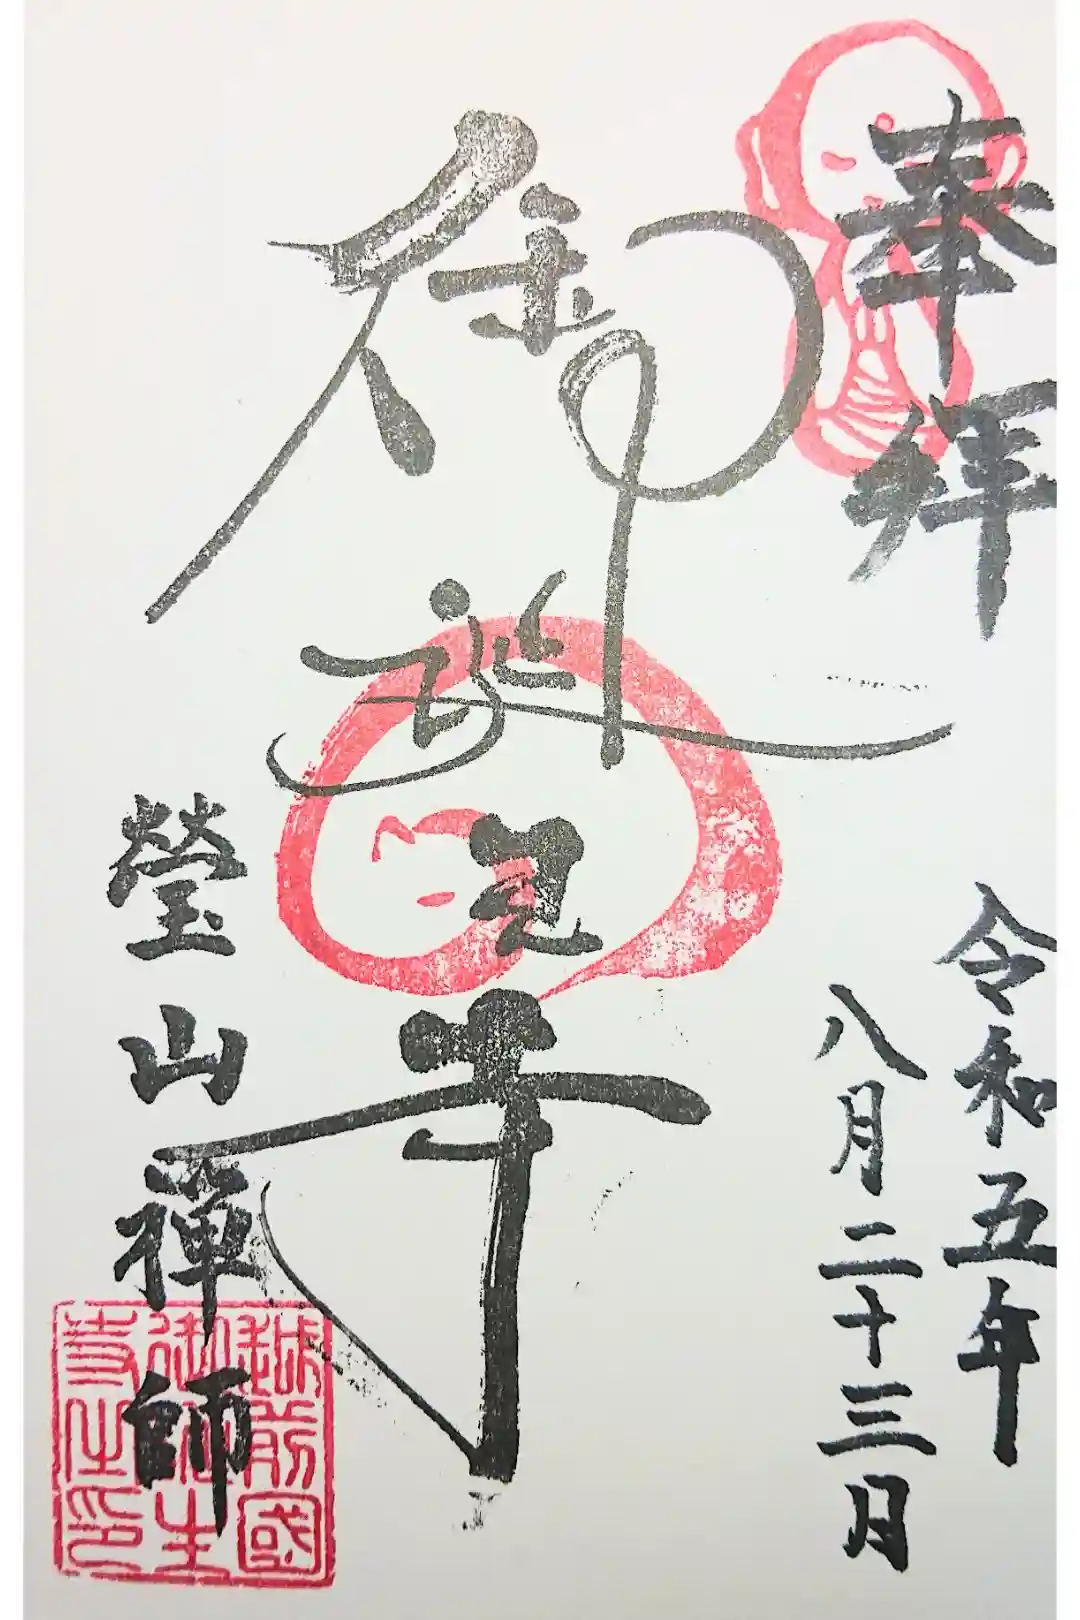 奉拝
令和五年
八月二十三日
瑩山禪師
越前國
御誕生
寺之印